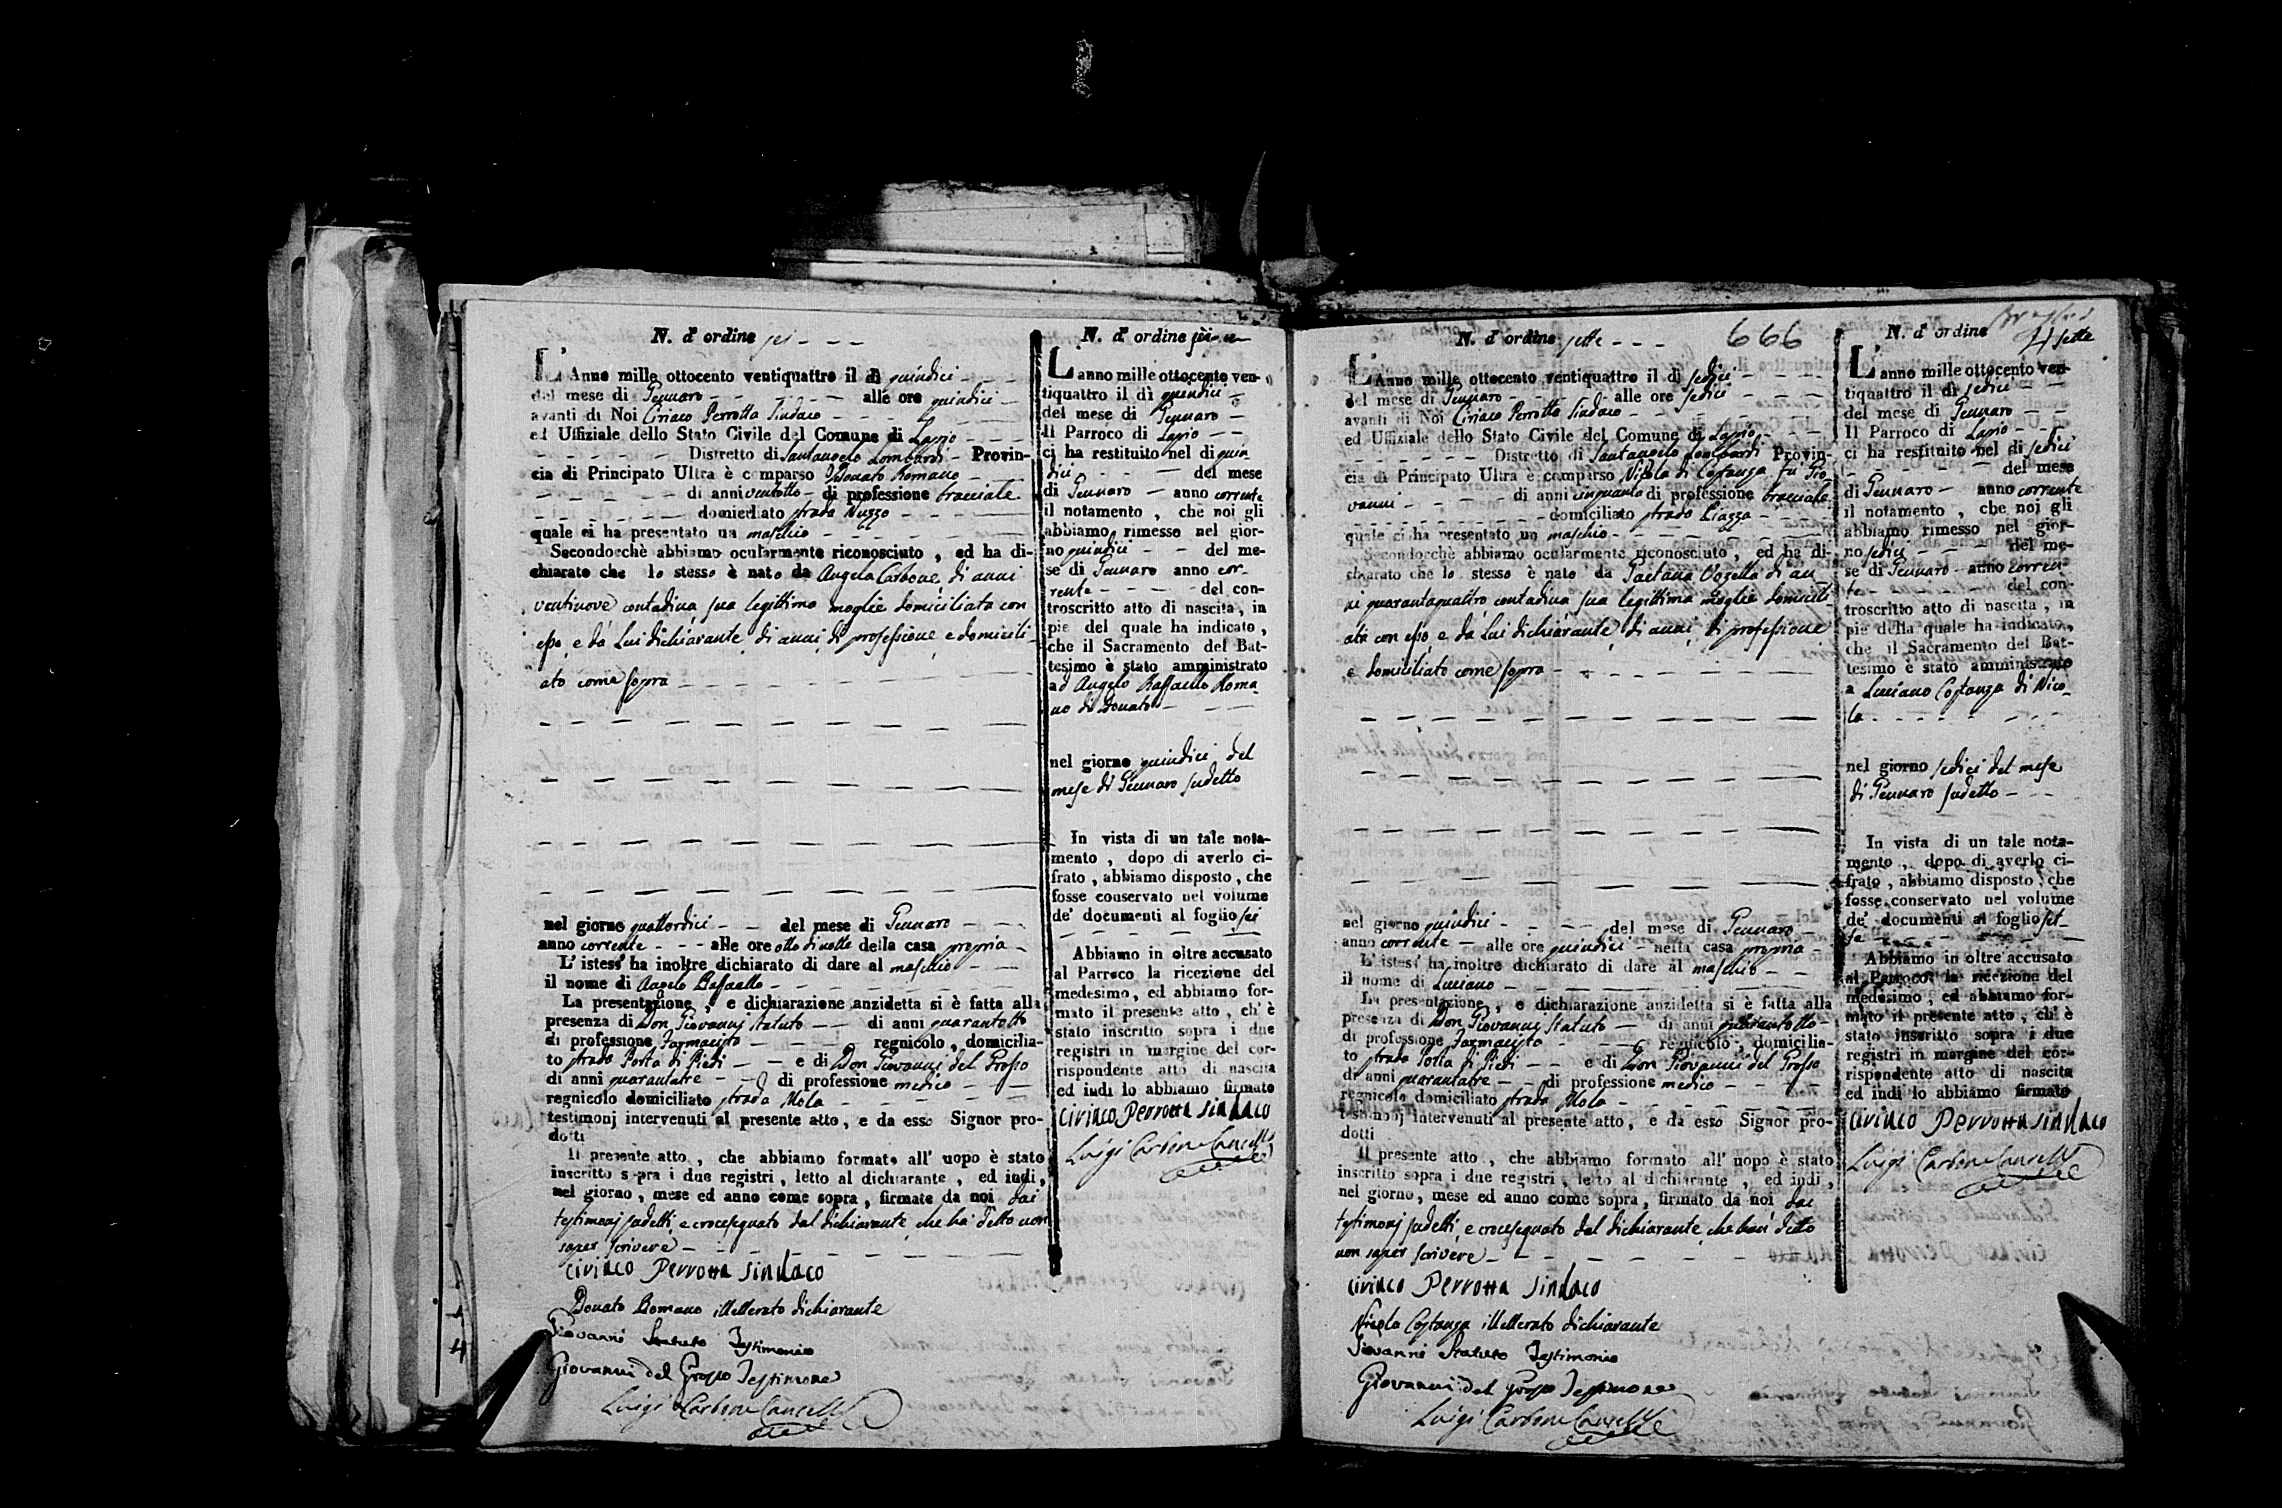 N. d'ordine sei
L'Anno mille ottocento ventiquattro il dì quindici
del mese di Gennaro alle ore quindici
avanti di Noi Ciriaco Perrotta Sindaco
ed Uffiziale dello Stato Civile del Comune di Lapio
Distretto di Santangelo Lombardi Provin-
cia di Principato Ultra è comparso Donato Romano
di anni ventotto di professione bracciale
domiciliato strada Nuzzo
quale ci ha presentato un maschio
Secondocchè abbiamo ocularmente riconosciuto, ed ha di-
chiarato che lo stesso è nato da Angela Carbone di anni
ventinove contadina sua legittima moglie domiciliata con
esso, e da Lui dichiarante di anni di professione e domicili-
ato come sopra
nel giorno quattordici del mese di Gennaro
anno corrente alle ore otto di notte della casa propria
L'istess' ha inoltre dichiarato di dare al maschio
il nome di Angelo Raffaello
La presentazione, e dichiarazione anzidetta si è fatta alla
presenza di Don Giovanni Statuto di anni quarantotto
di professione Farmacista regnicolo, domicilia-
to strada Porta di Piedi e di Don Giovanni del Grosso
di anni quarantatre di professione medico
regnicolo domiciliato strada Mola
testimonj intervenuti al presente atto, e da esso Signor pro-
dotti
Il presente atto, che abbiamo formato all' uopo è stato
inscritto sopra i due registri, letto al dichiarante, ed indi,
nel giorno, mese ed anno come sopra, firmato da noi dai
testimonj sudetti, e crocesegnato dal dichiarante, che ha detto non
saper scrivere
Ciriaco Perrotta Sindaco
Donato Romano illetterato dichiarante
Giovanni Statuto Testimonio
Giovanni del Grosso Testimone
Luigi Carbone Cancell
N. d'ordine sei
L'anno mille ottocento ven-
tiquattro il dì quindici
del mese di Gennaro
Il Parroco di Lapio
ci ha restituito nel dì quin
dici del mese
di Gennaro anno corrente
il notamento, che noi gli
abbiamo rimesso nel gior-
no quindici del me-
se di Gennaro anno cor-
rente del con-
troscritto atto di nascita, in
pie del quale ha indicato,
che il Sacramento del Bat-
tesimo è stato amministrato
ad Angelo Raffaello Roma-
no di Donato
nel giorno quindici del
mese di Gennaro sudetto
In vista di un tale nota-
mento, dopo di averlo ci-
frato, abbiamo disposto, che
fosse conservato nel volume
de' documenti al foglio sei
Abbiamo in oltre accusato
al Parroco la ricezione del
medesimo, ed abbiamo for-
mato il presente atto, ch' è
stato inscritto sopra i due
registri in margine del cor-
rispondente atto di nascita
ed indi lo abbiamo firmato
Ciriaco Perrotta Sindaco
Luigi Carbone Cancell
4
N. d'ordine sette
666
L'Anno mille ottocento ventiquattro il dì sedici
del mese di Gennaro alle ore sedici
avanti di Noi Ciriaco Perrotta Sindaco
ed Uffiziale dello Stato Civile del Comune di Lapio
Distretto di Santangelo Lombardi Provin-
cia di Principato Ultra è comparso Nicola di Costanza fu Gio-
vanni di anni cinquanta di professione bracciale
domiciliato strada Piazza
quale ci ha presentato un maschio
Secondocchè abbiamo ocularmente riconosciuto, ed ha di-
chiarato che lo stesso è nato da Gaetana Vozella di an-
ni quarantaquattro contadina sua legittima moglie domicili-
ata con esso, e da Lui dichiarante di anni di professione
e domiciliato come sopra
nel giorno quindici del mese di Gennaro
anno corrente alle ore quindici nella casa propria
L'istess' ha inoltre dichiarato di dare al maschio
il nome di Luciano
La presentazione, e dichiarazione anzidetta si è fatta alla
presenza di Don Giovanni Statuto di anni quarantotto
di professione Farmacista regnicolo, domicilia-
to strada Porta di Piedi e di Don Giovanni del Grosso
di anni quarantatre di professione medico
regnicolo domiciliato strada Mola
testimonj intervenuti al presente atto, e da esso Signor pro-
dotti
Il presente atto, che abbiamo formato all' uopo è stato
inscritto sopra i due registri, letto al dichiarante, ed indi,
nel giorno, mese ed anno come sopra, firmato da noi dai
testimonj sudetti, e crocesegnato dal dichiarante, che ha detto
non saper scrivere
Ciriaco Perrotta Sindaco
Nicola Costanza illetterato dichiarante
Giovanni Statuto Testimonio
Giovanni del Grosso Testimone
Luigi Carbone Cancell
N. d'ordine sette
L'anno mille ottocento ven-
tiquattro il dì sedici
del mese di Gennaro
Il Parroco di Lapio
ci ha restituito nel dì sedici
del mese
di Gennaro anno corrente
il notamento, che noi gli
abbiamo rimesso nel gior-
no sedici del me-
se di Gennaro anno corren-
te del con-
troscritto atto di nascita, in
pie della quale ha indicato,
che il Sacramento del Bat-
tesimo è stato amministrato
a Luciano Costanza di Nico-
la
nel giorno sedici del mese
di Gennaro sudetto
In vista di un tale nota-
mento, dopo di averlo ci-
frato, abbiamo disposto, che
fosse conservato nel volume
de' documenti al foglio set-
te
Abbiamo in oltre accusato
al Parroco la ricezione del
medesimo, ed abbiamo for-
mato il presente atto, ch' è
stato inscritto sopra i due
registri in margine del cor-
rispondente atto di nascita
ed indi lo abbiamo firmato
Ciriaco Perrotta Sindaco
Luigi Carbone Cancell